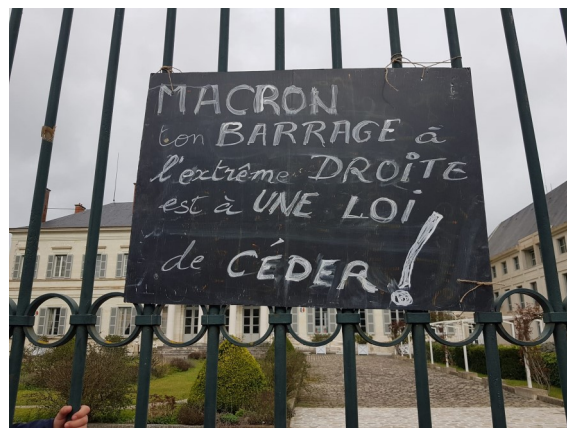 MACRON
ton BARRAGE à
l'extrême DROITE
est à UNE LOI
de CÉDER !